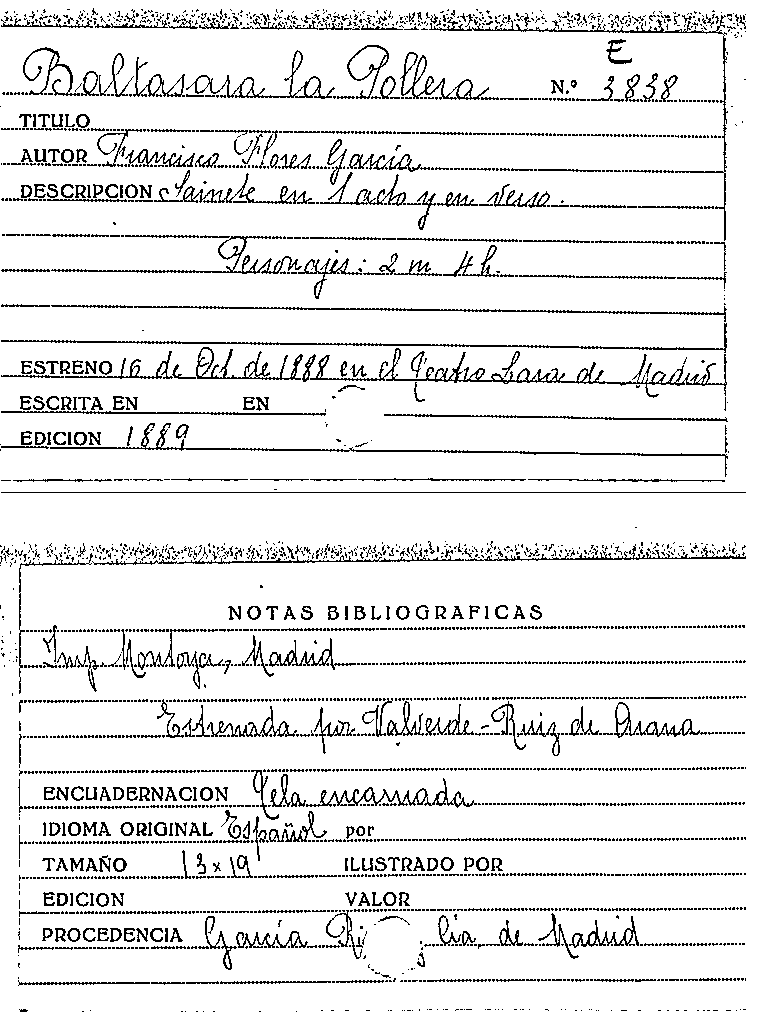 E
Baltasara la Pollera N.º 3838
TITULO
AUTOR Francisco Flores García
DESCRIPCION Sainete en 1 acto y en verso.
Personajes: 2 m 4 h.
ESTRENO 16 de Oct. de 1888 en el Teatro Lara de Madrid
ESCRITA EN EN
EDICION 1889
NOTAS BIBLIOGRAFICAS
Imp Montoya, Madrid
Estrenada por Valverde-Ruiz de Arana
ENCUADERNACION Tela encarnada
IDIOMA ORIGINAL Español por
TAMAÑO 13x19 ILUSTRADO POR
EDICION VALOR
PROCEDENCIA García de Madrid